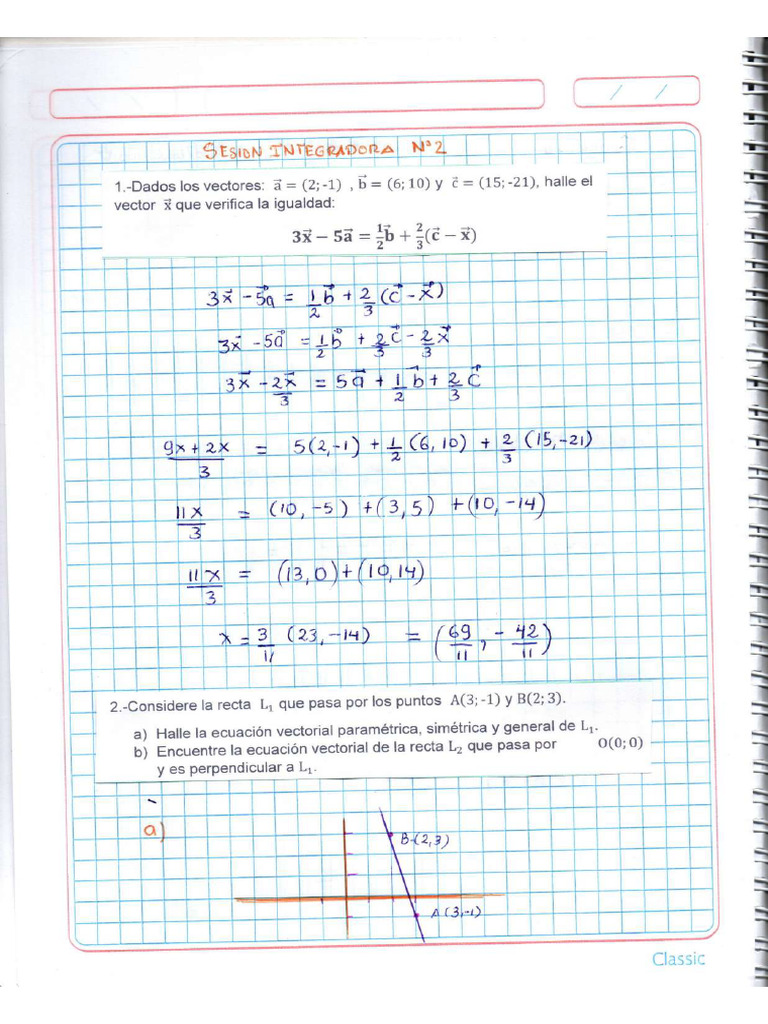 / /
SESION INTEGRADORA N°2
1.-Dados los vectores: a⃗ = (2; -1) , b⃗ = (6; 10) y c⃗ = (15; -21), halle el
vector x⃗ que verifica la igualdad:
3x⃗ − 5a⃗ = 1/2 b⃗ + 2/3 (c⃗ − x⃗)
3x⃗ - 5a⃗ = 1/2 b⃗ + 2/3 (c⃗ - x⃗)
3x⃗ - 5a⃗ = 1/2 b⃗ + 2/3 c⃗ - 2/3 x⃗
3x⃗ - 2x⃗/3 = 5a⃗ + 1/2 b⃗ + 2/3 c⃗
9x + 2x/3 = 5(2,-1) + 1/2 (6,10) + 2/3 (15,-21)
11x/3 = (10, -5) + (3,5) + (10, -14)
11x/3 = (13,0) + (10,14)
x = 3/11 (23, -14) = (69/11, - 42/11)
2.-Considere la recta L₁ que pasa por los puntos A(3; -1) y B(2; 3).
a) Halle la ecuación vectorial paramétrica, simétrica y general de L₁.
b) Encuentre la ecuación vectorial de la recta L₂ que pasa por O(0; 0)
y es perpendicular a L₁.
a)
B-(2,3)
A (3,-1)
Classic